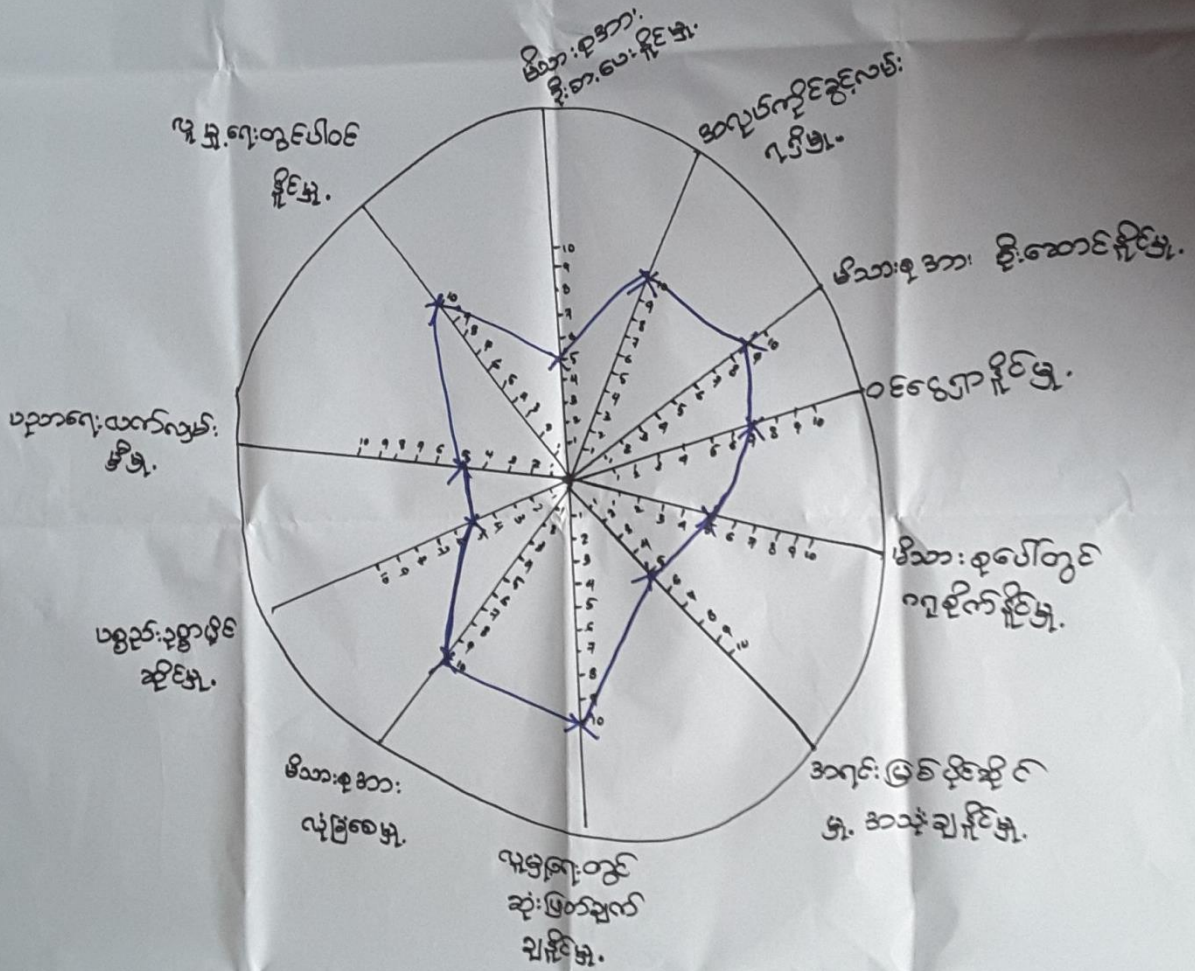 မိသားစုအား
ဦးစားပေးနိုင်မှု.
အလုပ်ကိုင်ခွင့်လမ်း
ရှိမှု.
မိသားစုအား ဦးဆောင်နိုင်မှု.
ဝင်ငွေရှာနိုင်မှု.
မိသားစုပေါ်တွင်
ဂရုစိုက်နိုင်မှု.
အရင်းမြစ်ပိုင်ဆိုင်
မှု. အသုံးချနိုင်မှု.
လူမှုရေးတွင်
ဆုံးဖြတ်ချက်
ချနိုင်မှု.
မိသားစုအား
လုံခြုံစေမှု.
ပစ္စည်းဥစ္စာပိုင်
ဆိုင်မှု.
ပညာရေးထက်လှမ်း
မှီမှု.
လူမှုရေးတွင်ပါဝင်
နိုင်မှု.
10
9
8
7
6
5
4
3
2
1